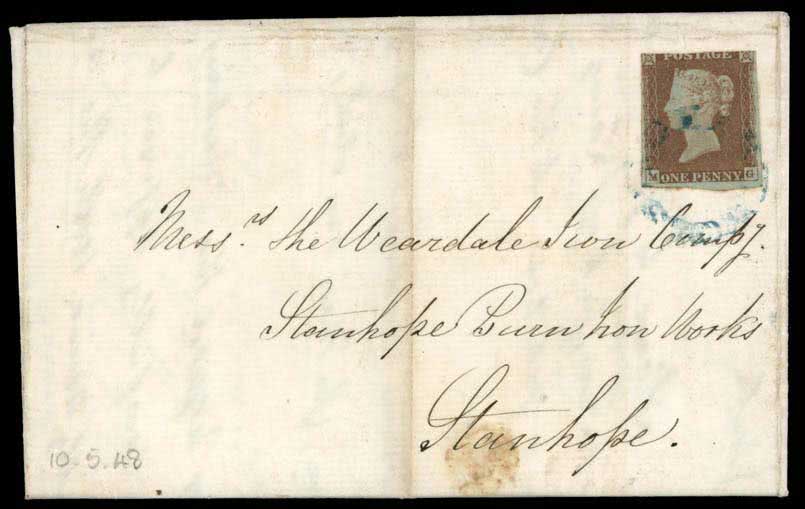 POSTAGE
M ONE PENNY G
Mess.rs The Weardale Iron Compy.
Stanhope Burn Iron Works
Stanhope.
10.5.48